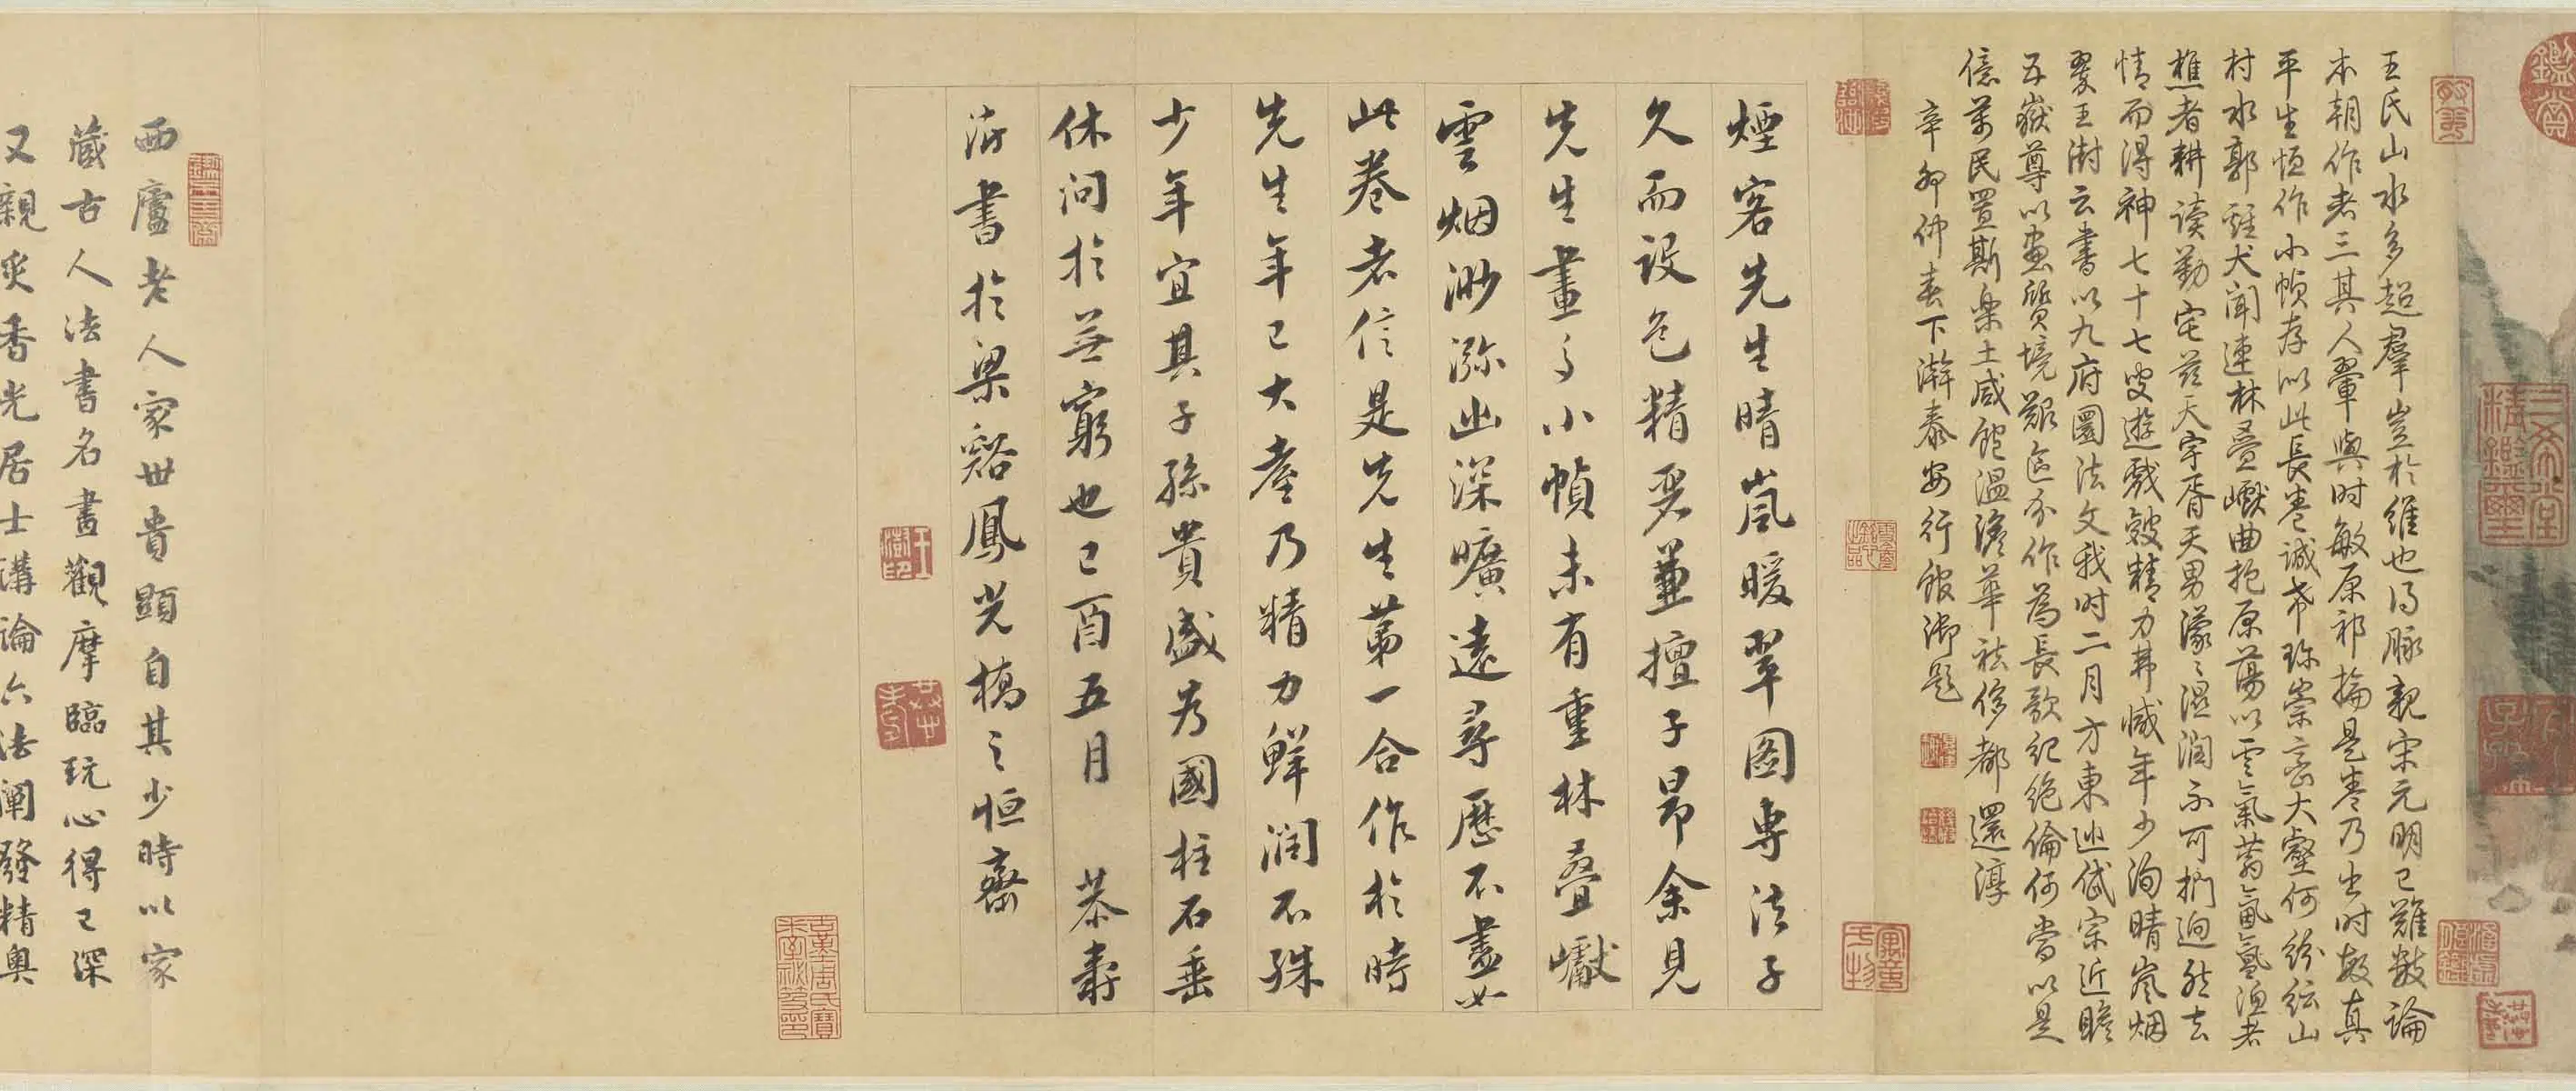 王氏山水多超羣豈於維也得脉親宋元明已難數論
本朝作者三其人翬與時敏原祁掄是卷乃出時敏真
平生恒作小幀存以此長卷誠希珍崇巒大壑何紛紜山
村水郭雞犬聞連林疊巘曲抱原蕩以雲氣蓊氤氳漁者
樵者耕讀勤宅茲天宇胥天男濛濛濕潤不可捫迥然去
情而得神七十七叟遊戲皴精力弗慽年少洵晴嵐烟
翠王澍云書以九府圜法文我時二月方東巡岱宗近瞻
五嶽尊以畫質境艱匹分作為長歌紀絶倫何當以是
億萬民置斯樂土咸飽温澹華袪侈都還淳
辛卯仲春下澣泰安行館御題
煙客先生晴嵐暖翠圖專法子
久而設色精妥兼擅子昂余見
先生畫多小幀未有重林疊巘
雲烟渺瀰幽深曠遠尋歷不盡如
此卷者信是先生第一合作於時
先生年已大耋乃精力鮮潤不殊
少年宜其子孫貴盛為國柱石垂
休問於無窮也己酉五月 恭壽
澍書於梁谿鳳光橋之恒齋
西廬老人家世貴顯自其少時以家
藏古人法書名畫觀摩臨玩心得已深
又親炙香光居士講論六法闡發精奥